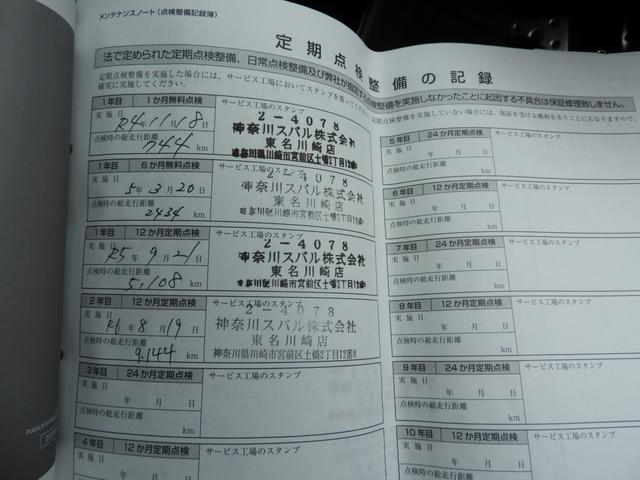 メンテナンスノート（点検整備記録簿）
定期点検整備の記録
法で定められた定期点検整備、日常点検整備及び弊社が指定する点検整備を実施しなかったことに起因する不具合は保証修理致しません。
定期点検整備を実施した場合には、サービス工場においてスタンプを
確実に実施してください。
定期点検整備を実施していない場合には、保証を受ける権利を失うことになりますので、
1年目 1か月無料点検 サービス工場のスタンプ
実施日 R4年11月18日
点検時の総走行距離
744 km
2-4078
神奈川スバル株式会社
東名川崎店
神奈川県川崎市宮前区土橋2丁目12番8
1年目 6か月無料点検 サービス工場のスタンプ
実施日 5年3月20日
点検時の総走行距離
2434 km
2-4078
神奈川スバル株式会社
東名川崎店
神奈川県川崎市宮前区土橋2丁目12番8
1年目 12か月定期点検 サービス工場のスタンプ
実施日 R5年9月21日
点検時の総走行距離
5,108 km
2-4078
神奈川スバル株式会社
東名川崎店
神奈川県川崎市宮前区土橋2丁目12番8
2年目 12か月定期点検 サービス工場のスタンプ
実施日 R6年8月19日
点検時の総走行距離
9,144 km
2-4078
神奈川スバル株式会社
東名川崎店
神奈川県川崎市宮前区土橋2丁目12番8
3年目 24か月定期点検 サービス工場のスタンプ
実施日 年 月 日
点検時の総走行距離
km
4年目 12か月定期点検 サービス工場のスタンプ
実施日 年 月 日
5年目 24か月定期点検 サービス工場のスタンプ
実施日 年 月 日
点検時の総走行距離
km
6年目 12か月定期点検 サービス工場のスタンプ
実施日 年 月 日
点検時の総走行距離
km
7年目 24か月定期点検 サービス工場のスタンプ
実施日 年 月 日
点検時の総走行距離
km
8年目 12か月定期点検 サービス工場のスタンプ
実施日 年 月 日
点検時の総走行距離
km
9年目 24か月定期点検 サービス工場のスタンプ
実施日 年 月 日
点検時の総走行距離
km
10年目 12か月定期点検 サービス工場のスタンプ
実施日 年 月 日
点検時の総走行距離
km